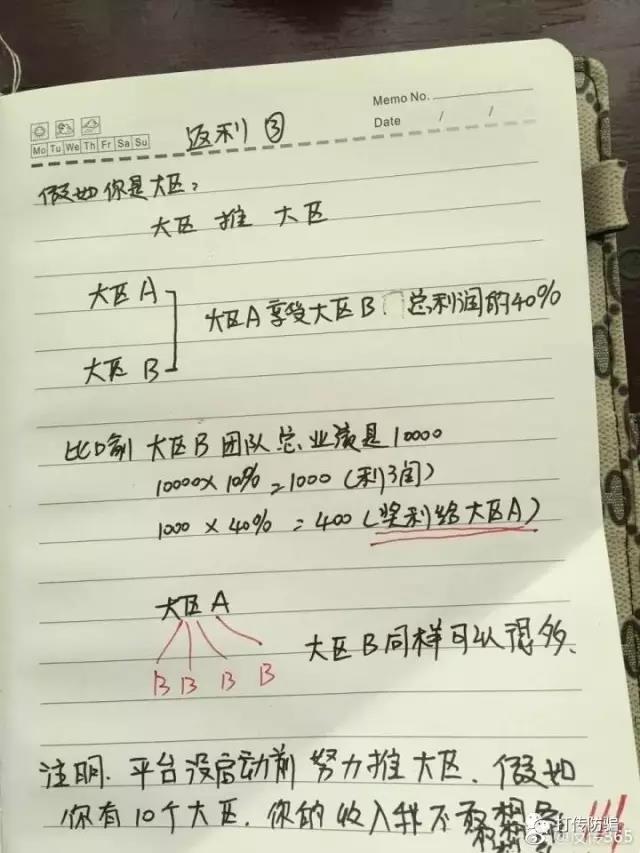 Memo No.
Mo Tu We Th Fr Sa Su
Date / /
返利 ③
假如你是大区:
大区 推 大区
大区 A
大区A享受大区B 总利润的40%
大区 B
比如 大区B团队总业绩是10000
10000×10%=1000(利润)
1000×40%=400(奖利给大区A)
大区 A
B B B B
大区B同样可以很多.
注明.平台没启动前 努力推大区.假如
你有10个大区.你的收入我不敢想象!!!
打传防骗